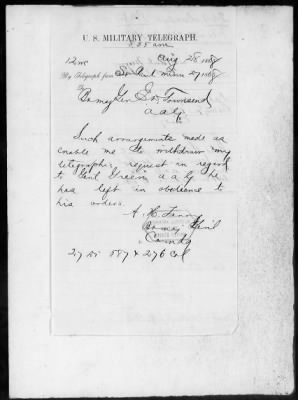 U. S. MILITARY TELEGRAPH.
8 35 am
12 mc Aug 28 1868
By Telegraph from St Paul Minn 27 1868
To
Bvt Maj Genl E. D. Townsend
A A G
Such arrangements made as
enable me to withdraw my
telegraphic request in regard
to Genl Green a a g he
has left in obedience to
his orders.
A. H. Terry
Bvt Maj Genl
Comdg
27 587 & 276 Col